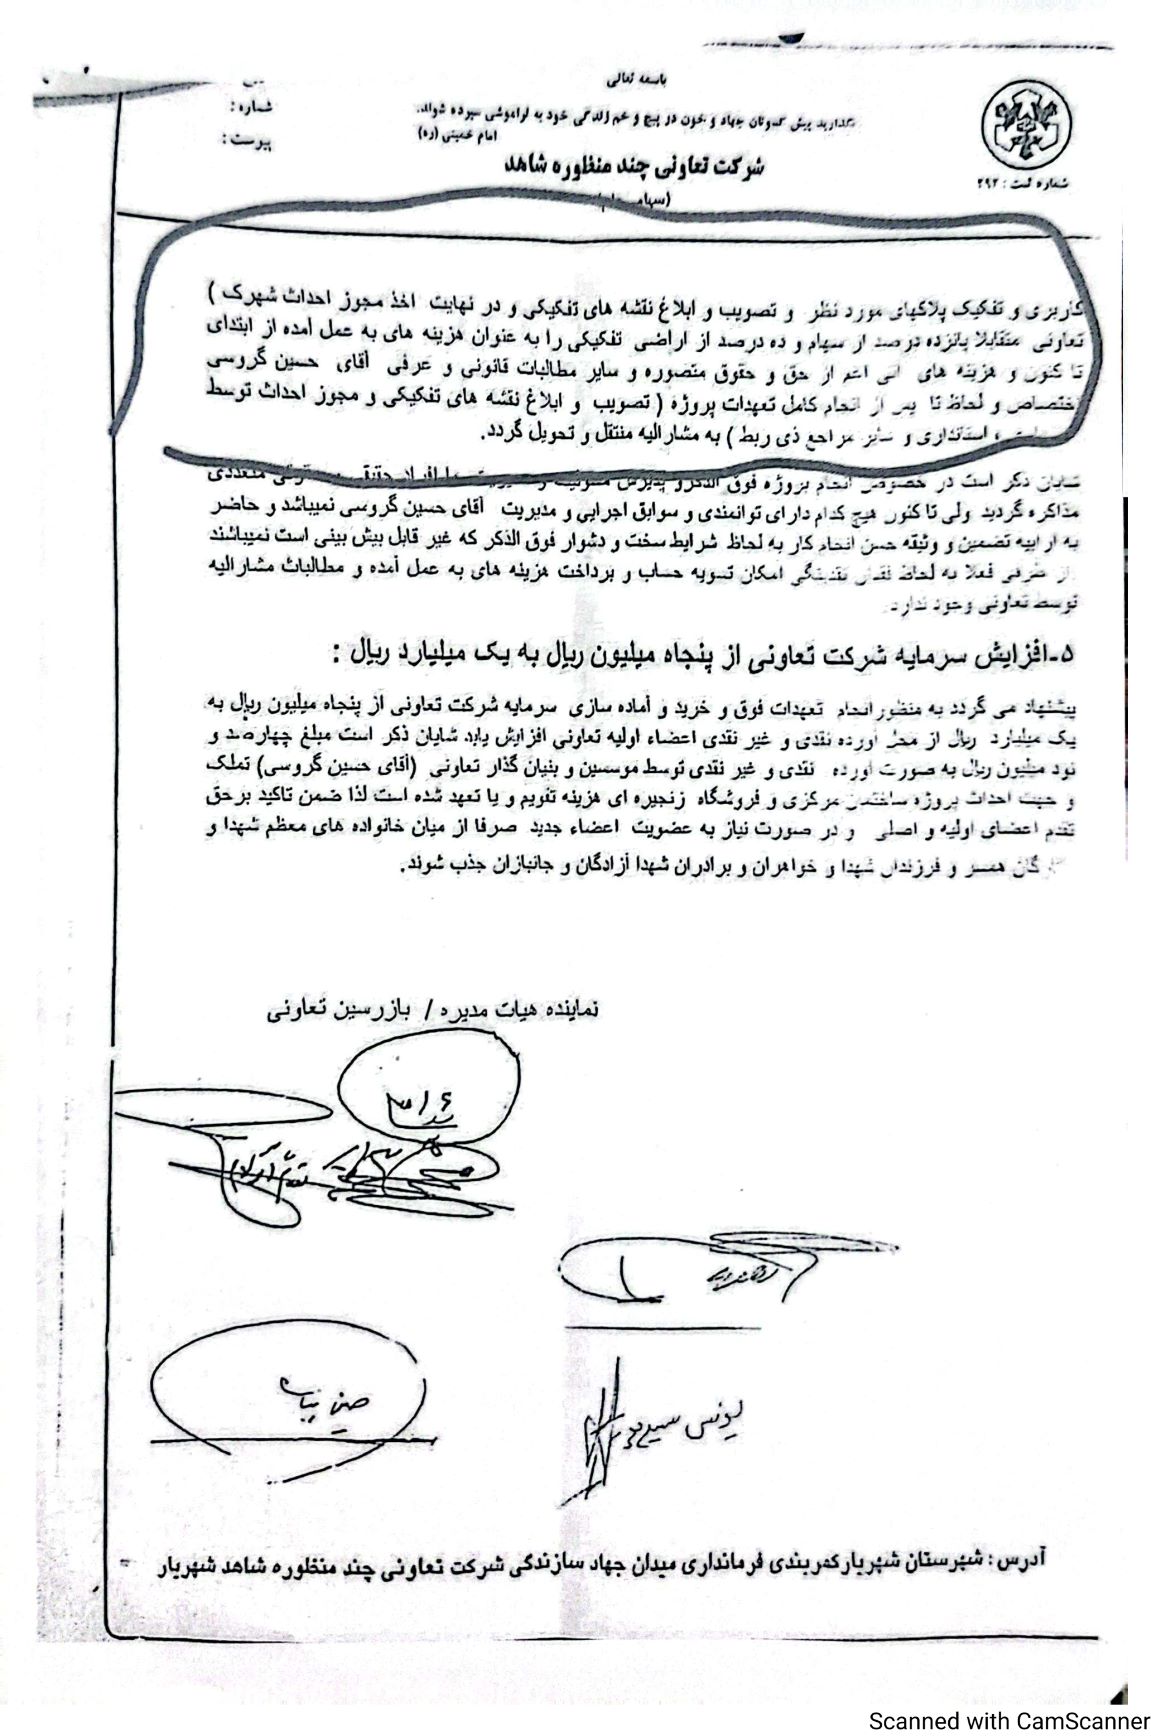 باسمه تعالی
نگذارید پیش کسوتان جهاد و خون در پیچ و خم زندگی خود به فراموشی سپرده شوند.
امام خمینی (ره)
شماره :
پیوست :
شرکت تعاونی چند منظوره شاهد
شماره ثبت : ۲۹۲
کاربری و تفکیک پلاکهای مورد نظر و تصویب و ابلاغ نقشه های تفکیکی و در نهایت اخذ مجوز احداث شهرک )
تعاونی متقابلا پانزده درصد از سهام و ده درصد از اراضی تفکیکی را به عنوان هزینه های به عمل آمده از ابتدای
تا کنون و هزینه های آتی اعم از حق و حقوق متصوره و سایر مطالبات قانونی و عرفی آقای حسین گروسی
اختصاص و لحاظ تا پس از انجام کامل تعهدات پروژه ( تصویب و ابلاغ نقشه های تفکیکی و مجوز احداث توسط
، استانداری و سایر مراجع ذی ربط ) به مشارالیه منتقل و تحویل گردد.
شایان ذکر است در خصوص انجام پروژه فوق الذکر و پذیرش مسئولیت و مدیریت با افراد حقیقی متعددی
مذاکره گردید ولی تا کنون هیچ کدام دارای توانمندی و سوابق اجرایی و مدیریت آقای حسین گروسی نمیباشد و حاضر
به ارایه تضمین و وثیقه حسن انجام کار به لحاظ شرایط سخت و دشوار فوق الذکر که غیر قابل پیش بینی است نمیباشند
از طرفی فعلا به لحاظ فقدان نقدینگی امکان تسویه حساب و پرداخت هزینه های به عمل آمده و مطالبات مشارالیه
توسط تعاونی وجود ندارد.
۵-افزایش سرمایه شرکت تعاونی از پنجاه میلیون ریال به یک میلیارد ریال :
پیشنهاد می گردد به منظور انجام تعهدات فوق و خرید و آماده سازی سرمایه شرکت تعاونی از پنجاه میلیون ریال به
یک میلیارد ریال از محل آورده نقدی و غیر نقدی اعضاء اولیه تعاونی افزایش یابد شایان ذکر است مبلغ چهارصد و
نود میلیون ریال به صورت آورده نقدی و غیر نقدی توسط موسسین و بنیان گذار تعاونی (آقای حسین گروسی) تملک
و جهت احداث پروژه ساختمان مرکزی و فروشگاه زنجیره ای هزینه تقویم و یا تعهد شده است لذا ضمن تاکید بر حق
تقدم اعضای اولیه و اصلی و در صورت نیاز به عضویت اعضاء جدید صرفا از میان خانواده های معظم شهدا و
همسر و فرزندان شهدا و خواهران و برادران شهدا آزادگان و جانبازان جذب شوند.
نماینده هیات مدیره / بازرسین تعاونی
یونس
آدرس : شهرستان شهریار کمربندی فرمانداری میدان جهاد سازندگی شرکت تعاونی چند منظوره شاهد شهریار
Scanned with CamScanner